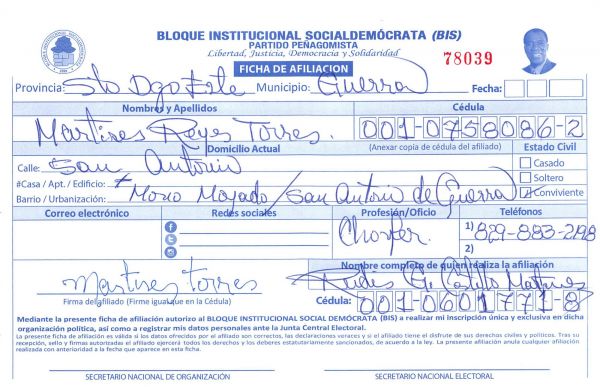 BLOQUE INSTITUCIONAL SOCIALDEMÓCRATA (BIS)
PARTIDO PEÑAGOMISTA
Libertad, Justicia, Democracia y Solidaridad
78039
FICHA DE AFILIACION
Provincia: Sto Dgo Este Municipio: Guerra Fecha:
Nombres y Apellidos Cédula
Martires Reyes Torres. 001-0758086-2
Domicilio Actual (Anexar copia de cédula del afiliado) Estado Civil
Calle: San Antonio Casado
#Casa / Apt. / Edificio: Soltero
Barrio / Urbanización: Mono Mojado / San Antonio de Guerra Conviviente
Correo electrónico Redes sociales Profesión/Oficio Teléfonos
Chofer. 1) 829-883-2198
2)
Martires Torres Nombre completo de quien realiza la afiliación
Castillo Martinez
Firma del afiliado (Firme igual que en la Cédula) Cédula: 001-0601771-8
Mediante la presente ficha de afiliación autorizo al BLOQUE INSTITUCIONAL SOCIAL DEMÓCRATA (BIS) a realizar mi inscripción única y exclusiva en dicha
organización política, así como a registrar mis datos personales ante la Junta Central Electoral.
La presente ficha de afiliación es válida si los datos ofrecidos por el afiliado son correctos, las declaraciones veraces y si el afiliado tiene el disfrute de sus derechos civiles y políticos. Tras su
recepción, sello y firmas autorizadas el afiliado ejercerá todos los derechos y los deberes estatutariamente sancionados, de acuerdo a la ley. La presente afiliación anula cualquier afiliación
realizada con anterioridad a la fecha que aparece en esta ficha.
SECRETARIO NACIONAL DE ORGANIZACIÓN SECRETARIO NACIONAL ELECTORAL